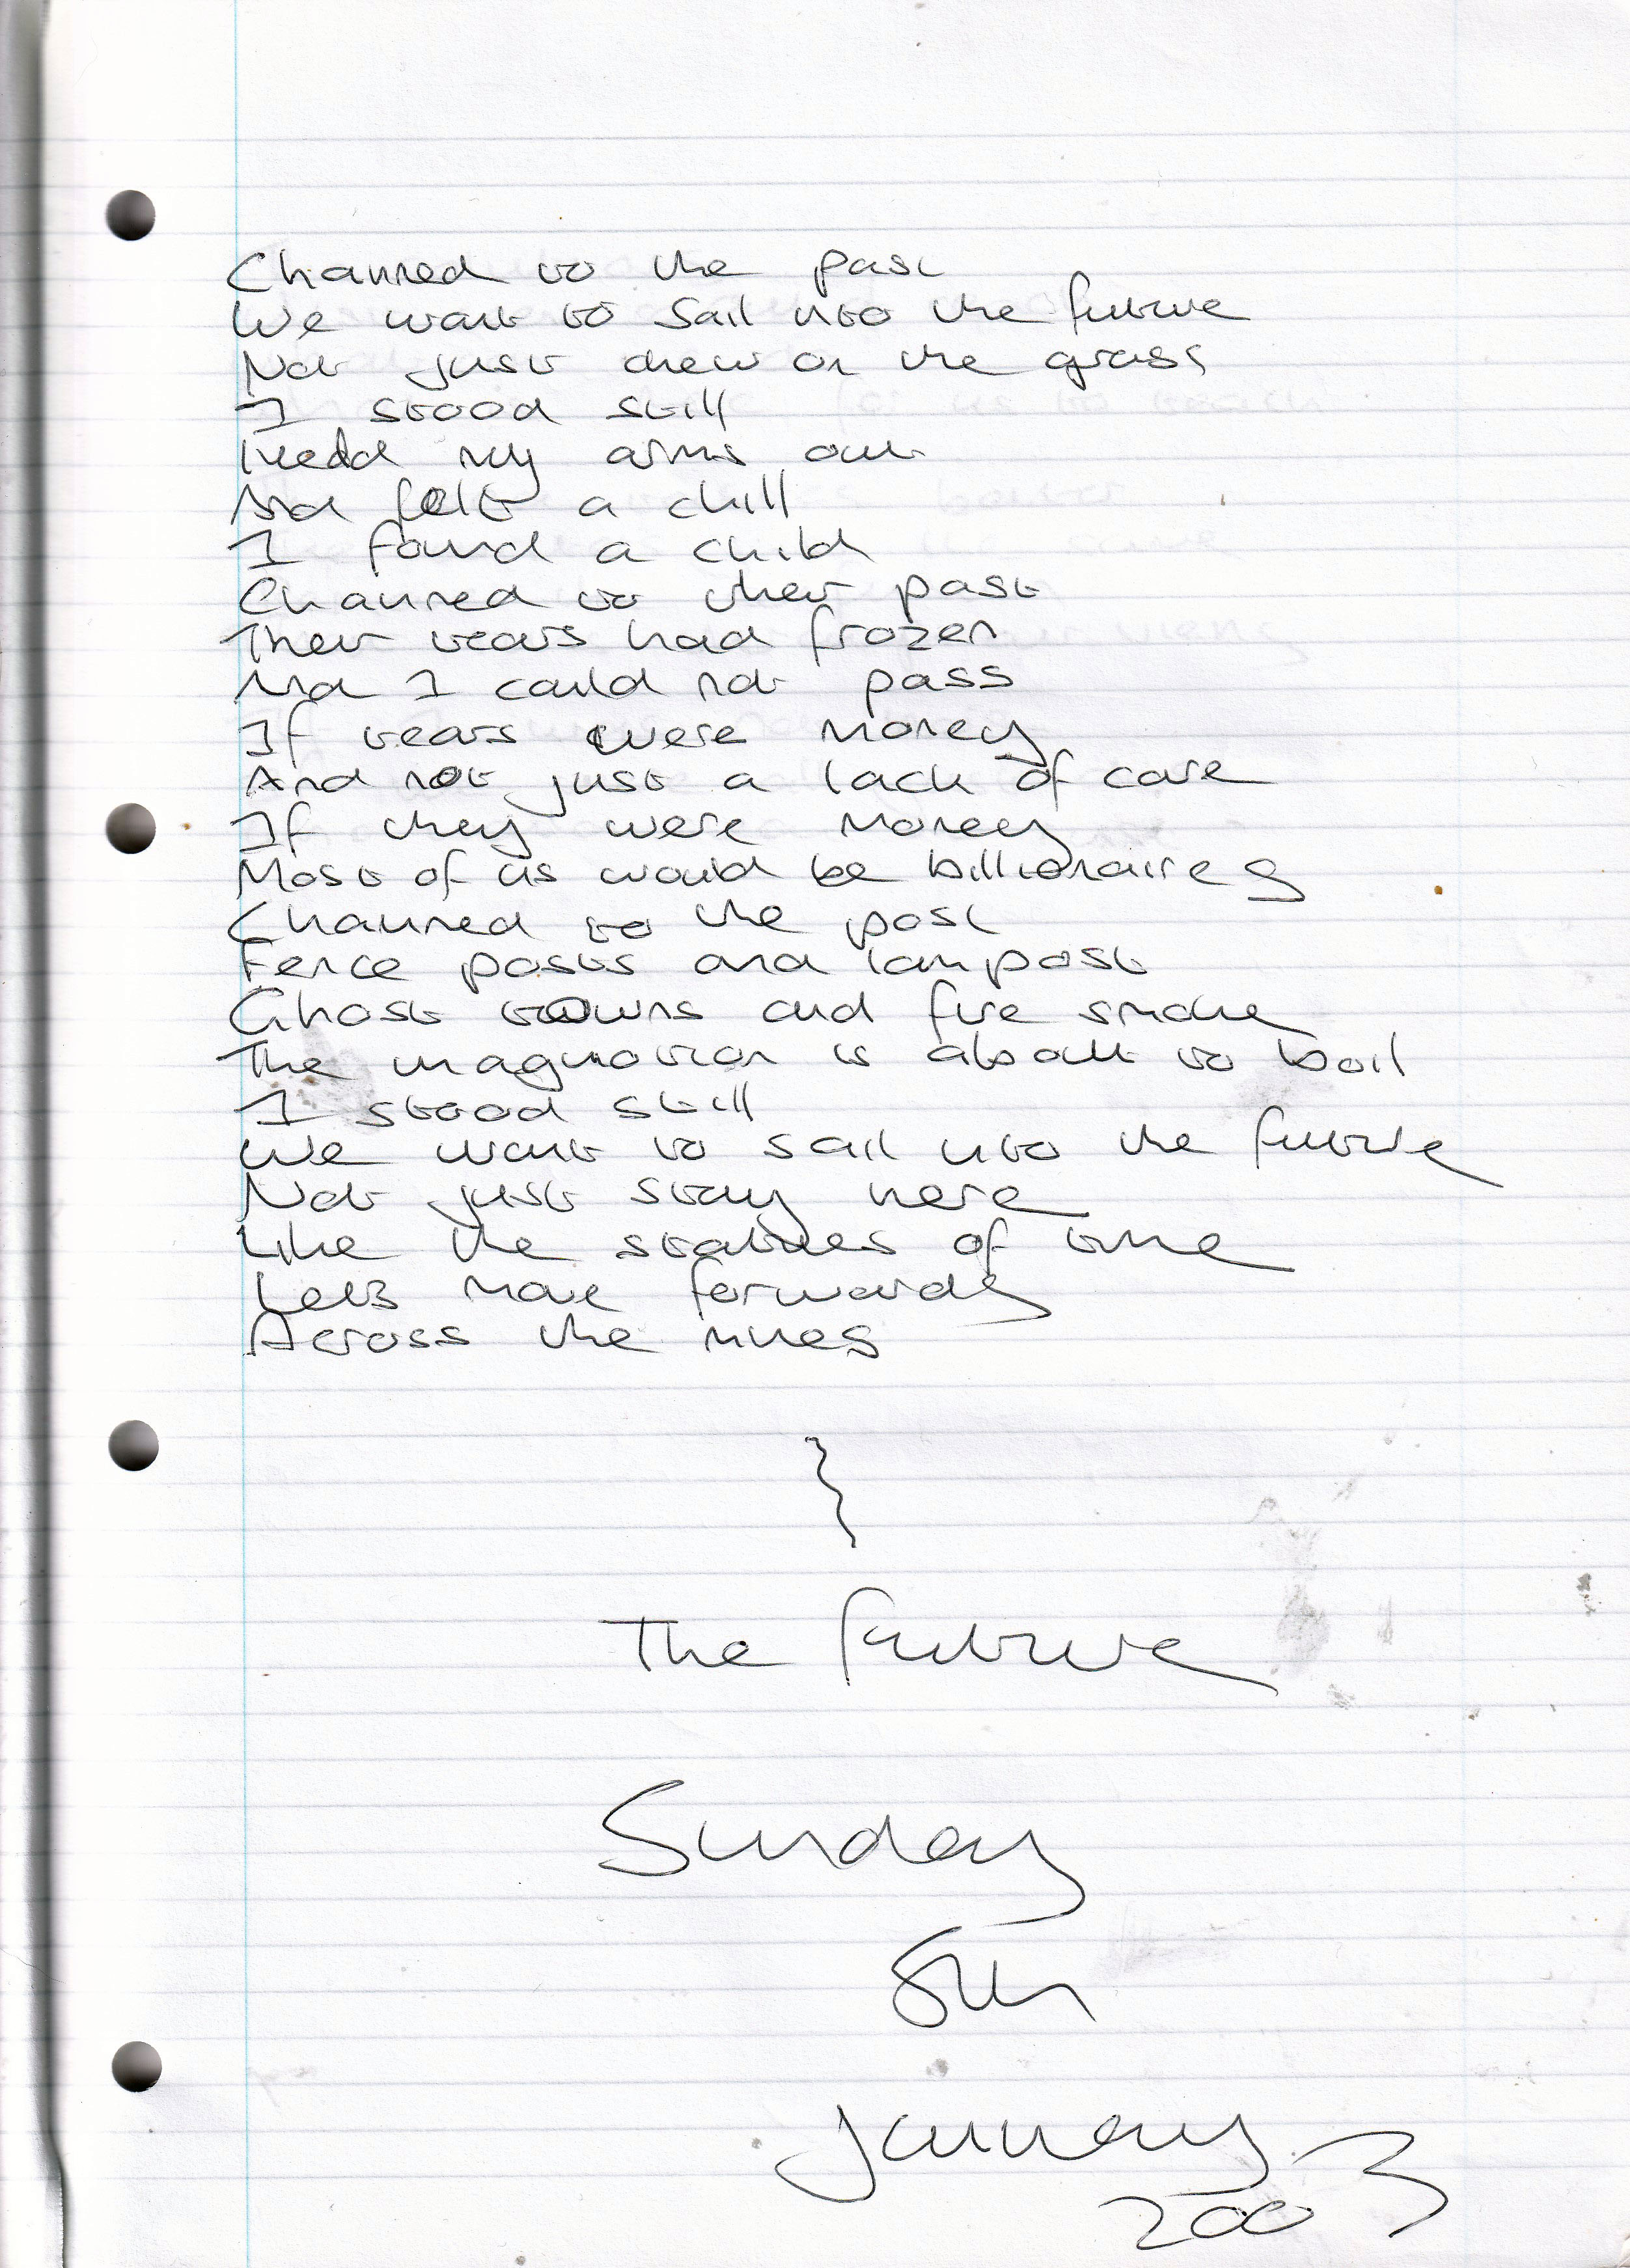 Chained to the past
We want to sail into the future
Not just chew on the grass
I stood still
Held my arms out
And felt a chill
I found a child
Chained to their past
Their tears had frozen
And I could not pass
If tears were money
And not just a lack of care
If they were money
Most of us would be billionaires
Chained to the post
Fence posts and lampost
Ghost towns and fire smoke
The imagination is about to boil
I stood still
We want to sail into the future
Not just stay here
Like the statues of time
Lets move forwards
Across the lines
}
The future
Sunday
5th
January
2003